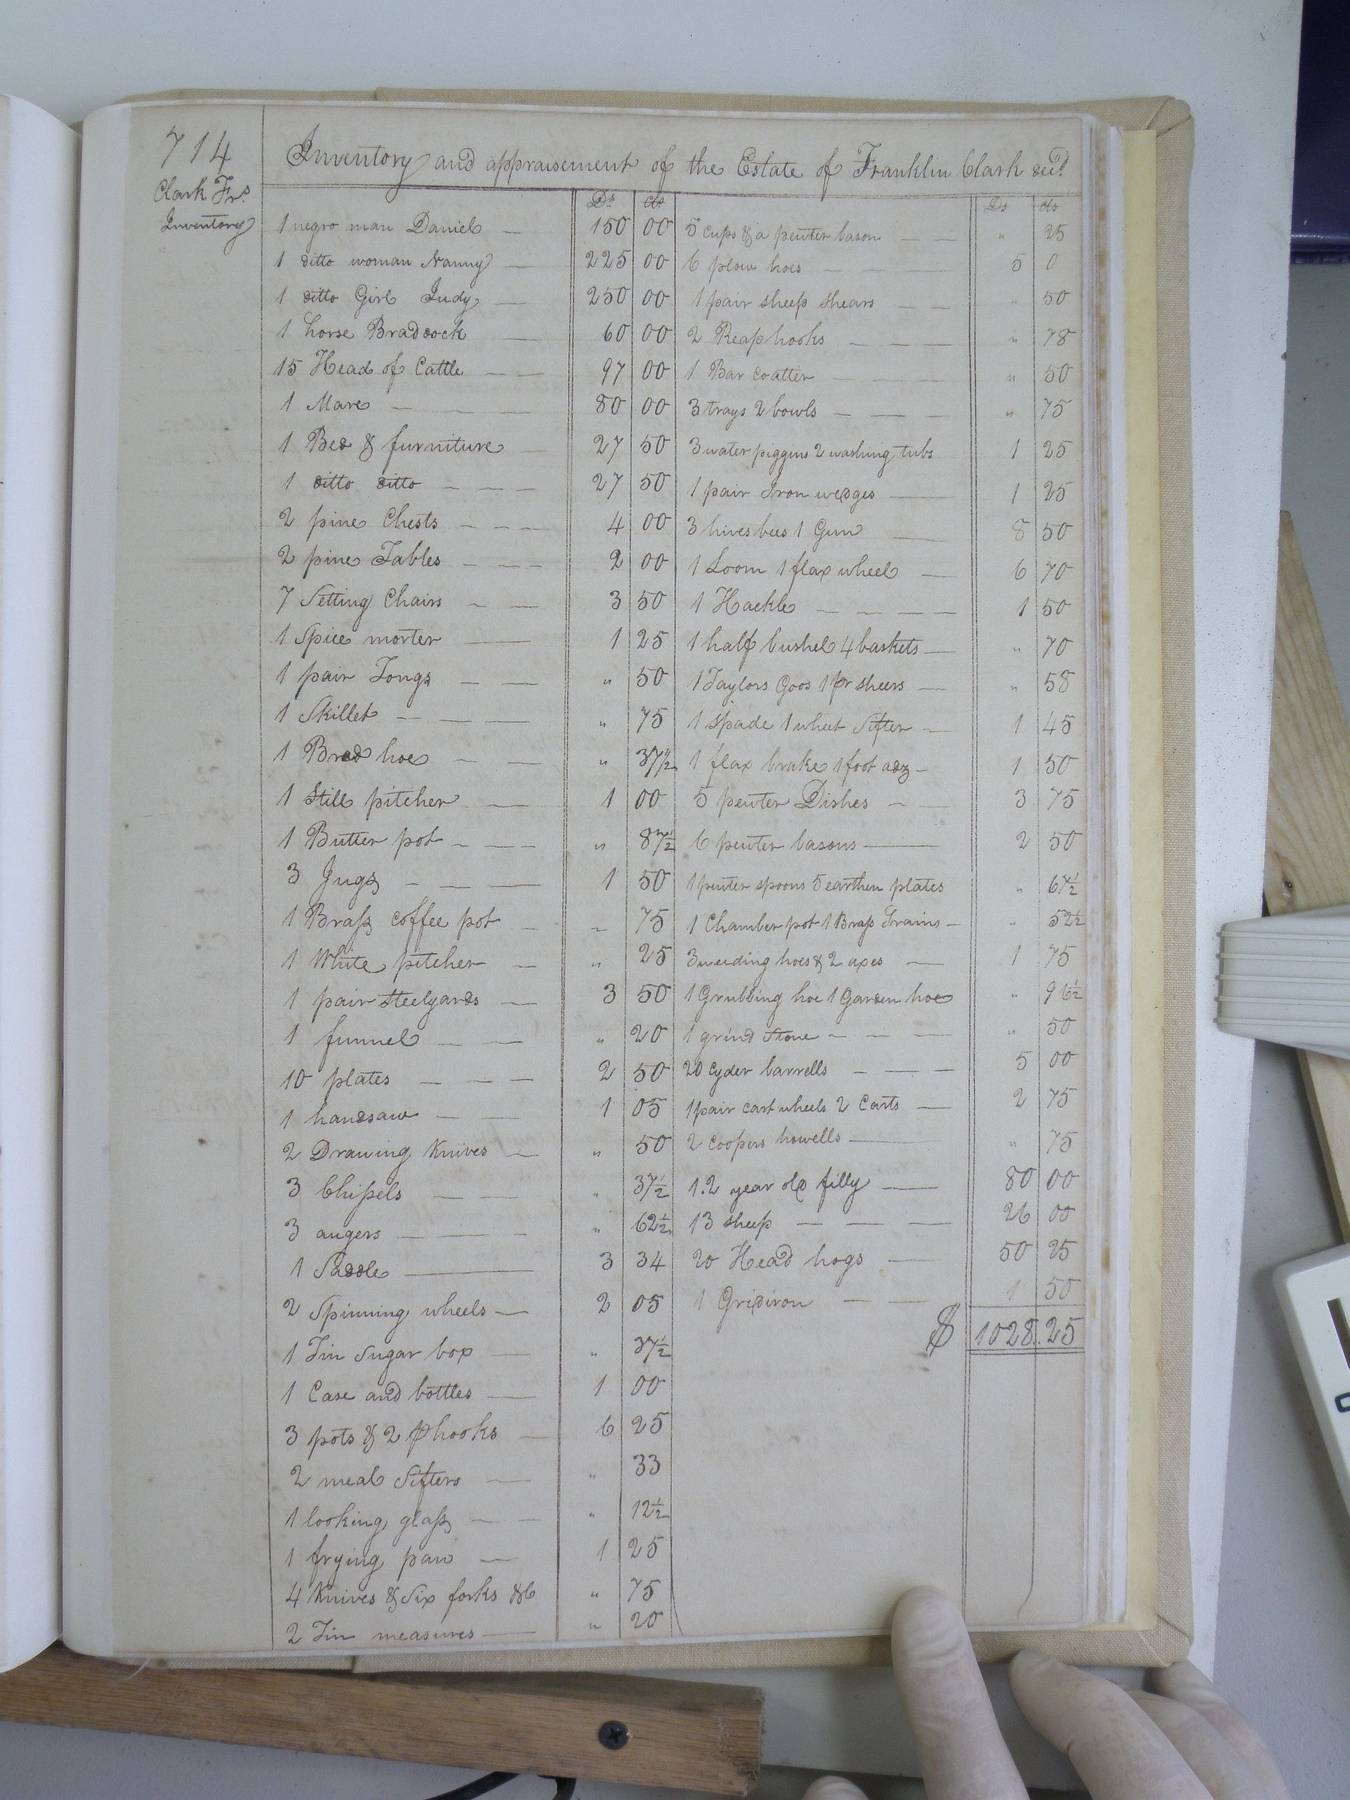 714
Clark Frs
Inventory
Inventory and appraisement of the Estate of Franklin Clark decd
Ds cts
1 negro man Daniel 150 00
1 ditto woman Nanny 225 00
1 ditto Girl Judy 250 00
1 horse Braddock 60 00
15 Head of Cattle 97 00
1 Mare 80 00
1 Bed & furniture 27 50
1 ditto ditto 27 50
2 pine Chests 4 00
2 pine Tables 2 00
7 Setting Chairs 3 50
1 Spice morter 1 25
1 pair Tongs " 50
1 Skillet " 75
1 Broad hoe " 37½
1 Still pitcher 1 00
1 Butter pot " 87½
3 Jugs 1 50
1 Brass coffee pot " 75
1 White pitcher " 25
1 pair steelyards 3 50
1 funnel " 20
10 plates 2 50
1 handsaw 1 05
2 Drawing Knives " 50
3 Chissels " 37½
3 augers " 62½
1 Saddle 3 34
2 Spinning wheels 2 05
1 Tin Sugar box " 37½
1 Case and bottles 1 00
3 pots & 2 phooks 6 25
2 meal Sifters " 33
1 looking glass " 12½
1 frying pan 1 25
4 Knives & Six forks &C " 75
2 Tin measures " 20
Ds cts
5 cups & a pewter bason " 25
6 plow hoes 5 0
1 pair sheep shears " 50
2 Reap hooks " 78
1 Bar coatter " 50
3 trays 2 bowls " 75
3 water piggins 2 washing tubs 1 25
1 pair Iron wedges 1 25
3 hives bees 1 Gun 8 50
1 Loom 1 flax wheel 6 70
1 Hackle 1 50
1 half bushel 4 baskets " 70
1 Taylors Goos 1 pr sheers " 58
1 Spade 1 wheet Sifter 1 45
1 flax brake 1 foot adz 1 50
5 pewter Dishes 3 75
6 pewter basons 2 50
1 pewter spoons 5 earthen plates " 67½
1 Chamber pot 1 Brass Trains " 52½
3 weeding hoes & 2 axes 1 75
1 Grubbing hoe 1 Garden hoe " 96½
1 grind Stone " 50
20 Cyder barrells 5 00
1 pair cart wheels 2 Carts 2 75
2 coopers howells " 75
1.2 year old filly 80 00
13 sheep 26 00
20 Head hogs 50 25
1 Gridiron 1 50
$ 1028.25